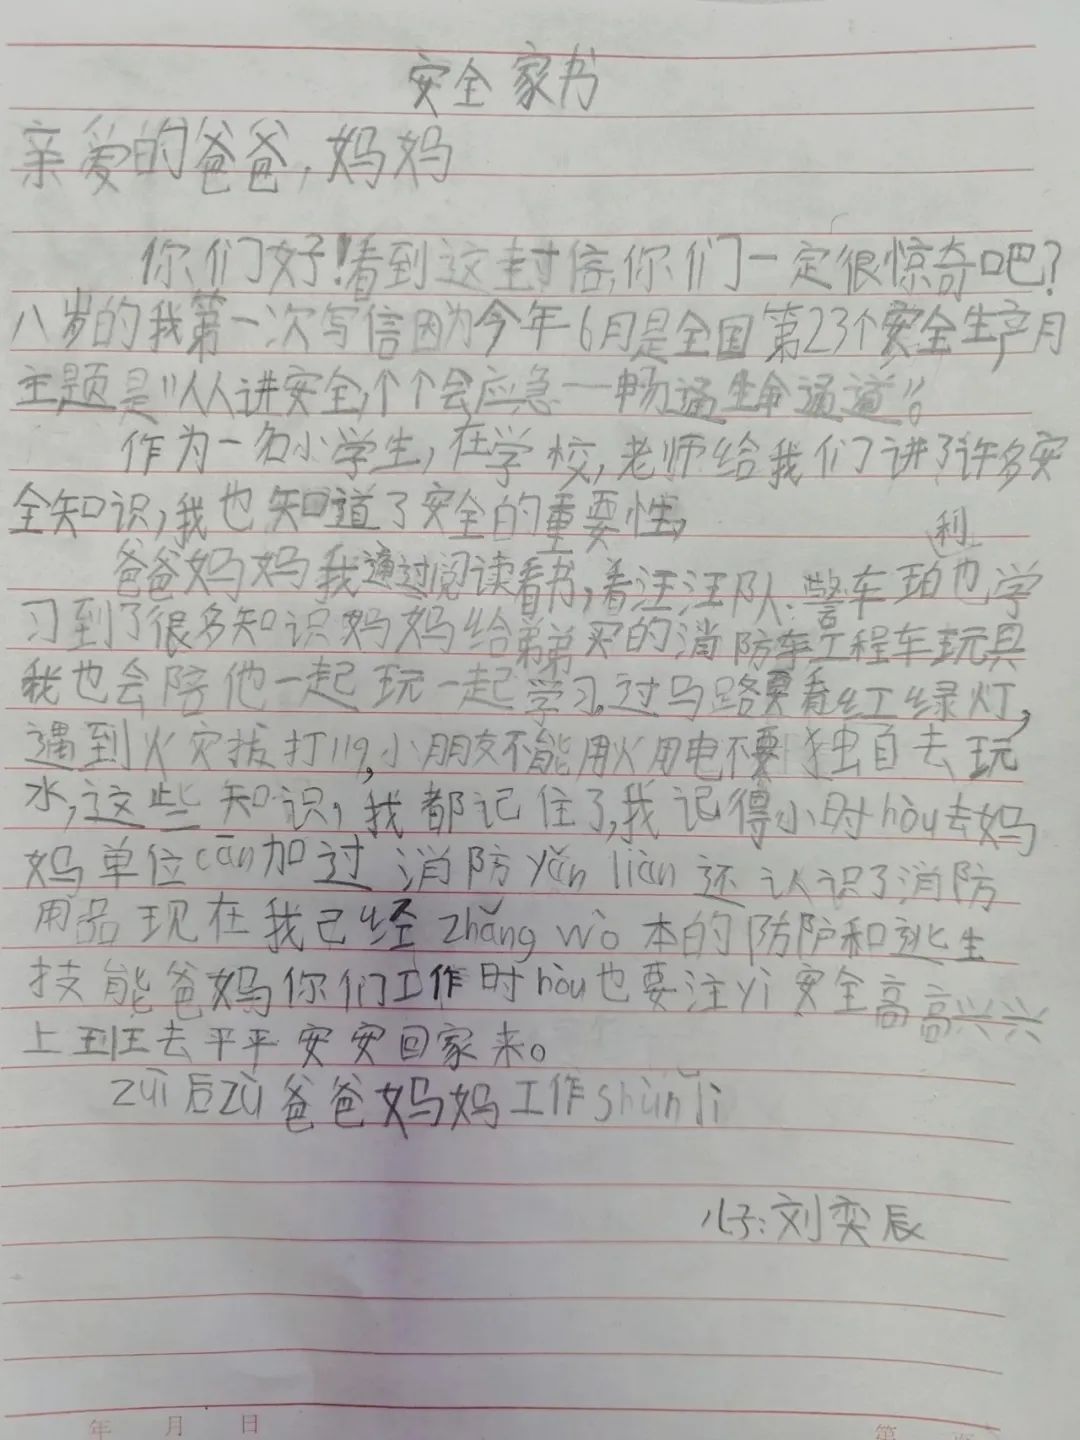 安全家书
亲爱的爸爸,妈妈
你们好!看到这封信,你们一定很惊奇吧?
八岁的我第一次写信因为今年6月是全国第23个安全生产月
主题是"人人讲安全,个个会应急一畅通生命通道"。
作为一名小学生,在学校,老师给我们讲了许多安
全知识,我也知道了安全的重要性,
爸爸妈妈我通过阅读看书,看汪汪队.警车珀利也学
习到了很多知识妈妈给弟弟买的消防车工程车玩具
我也会陪他一起玩一起学习.过马路要看红绿灯,
遇到火灾拔打119,小朋友不能用火用电不要独自去玩
水,这些知识,我都记住了,我记得小时hòu去妈
妈单位cān加过消防yǎn liàn还认识了消防
用品现在我已经zhǎng wò本的防护和逃生
技能爸妈你们工作时hòu也要注yì安全高高兴兴
上班去平平安安回家来。
zuì后zù爸爸妈妈工作shùn lì
儿子:刘奕辰
年 月 日
第